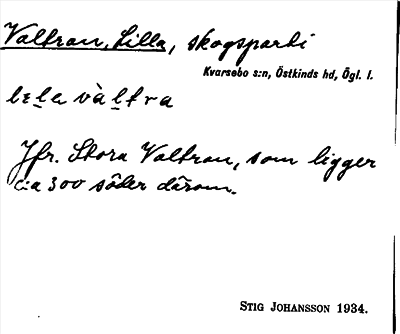 Valtran, Lilla, skogsparti
Kvarsebo s:n, Östkinds hd, Ögl. l.
vàltra
Jfr. Stora Valtran, som ligger
c:a 300 söder därom.
STIG JOHANSSON 1934.